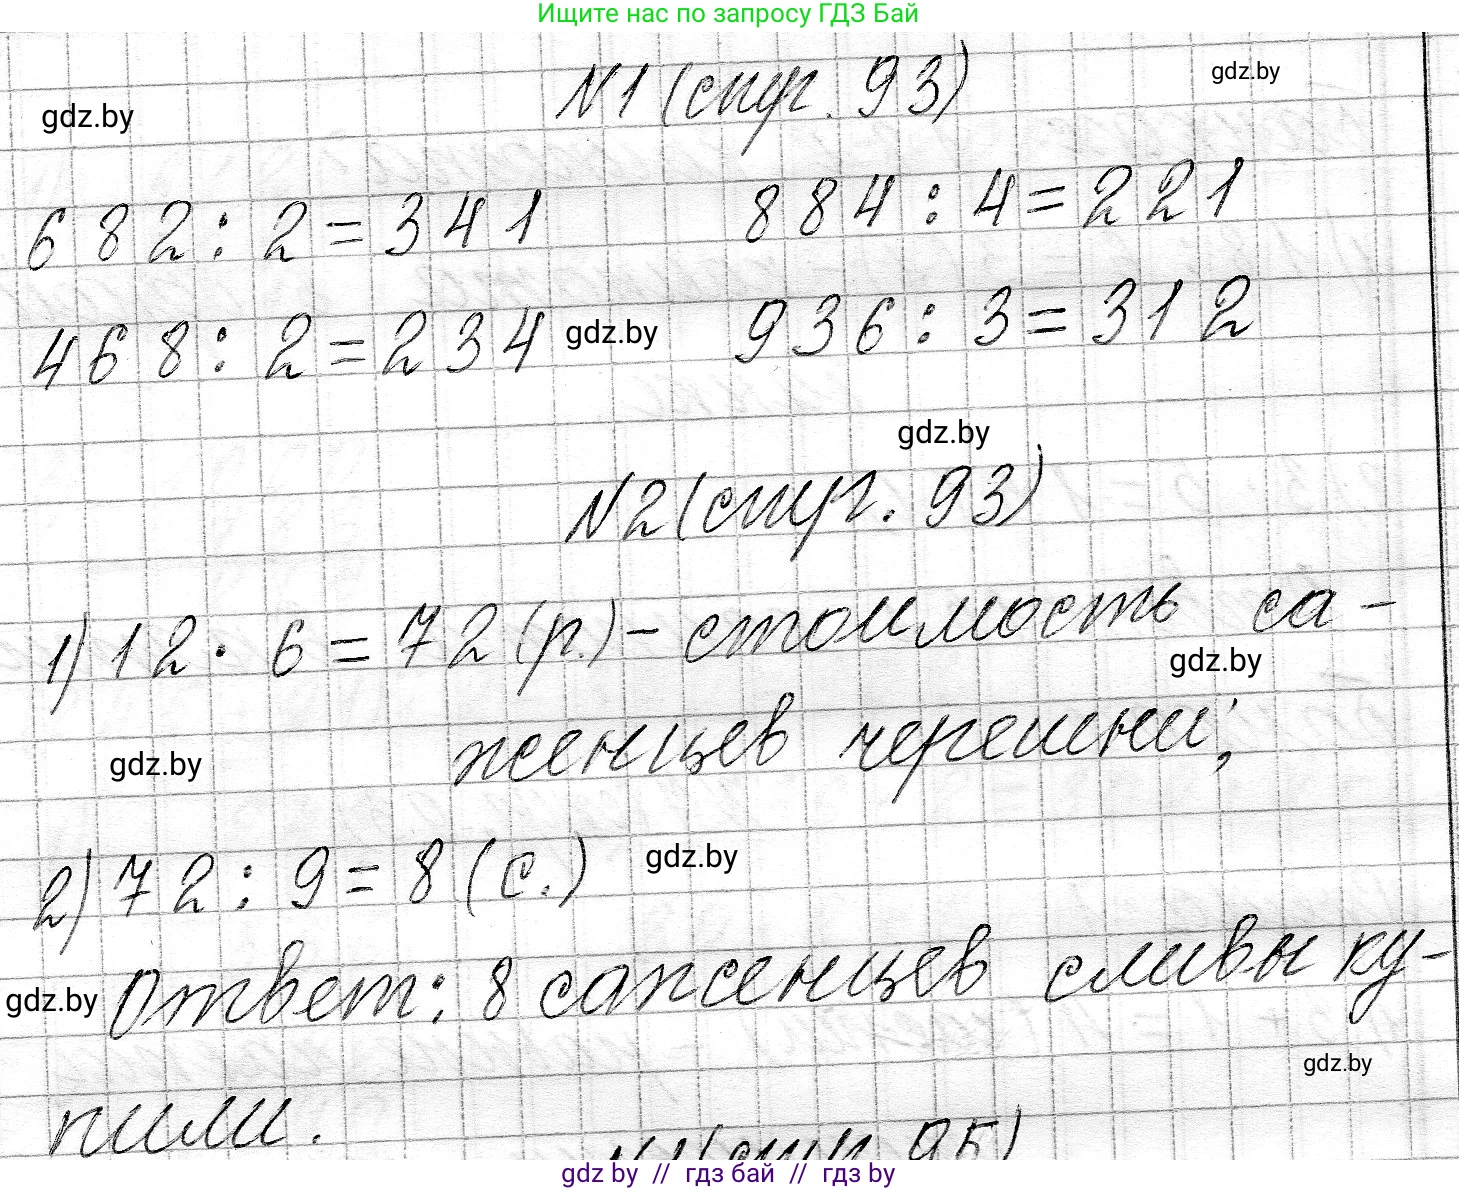 Ищите нас по запросу ГДЗ Бай
N1 (стр. 93)
gdz.by
gdz.by
682 : 2 = 341 884 : 4 = 221
468 : 2 = 234 gdz.by 936 : 3 = 312
gdz.by
N2 (стр. 93)
1) 12 · 6 = 72 (р.) – стоимость са-
gdz.by
женцев черешни;
gdz.by
2) 72 : 9 = 8 (с.) gdz.by
Ответ: 8 саженцев сливы ку-
gdz.by
gdz.by
пили.
N1 (стр. 95)
gdz.by // гдз бай // гдз by